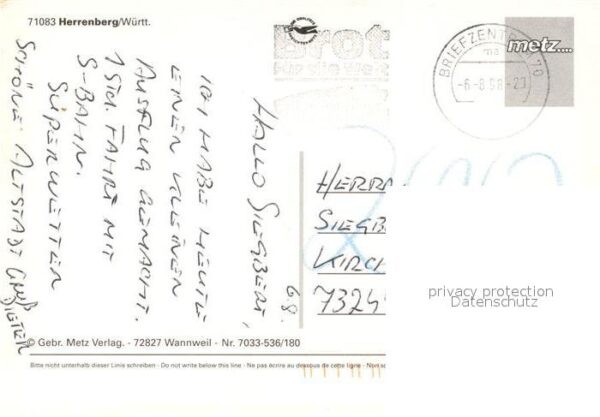 71083 Herrenberg/Württ.
Brot
für die Welt
BRIEFZENTRUM 70
ma
-6-8.98-20
metz....
6.8.
HALLO SIEGBERT,
ICH HABE HEUTE
EINEN KLEINEN
AUSFLUG GEMACHT.
1 STD. FAHRT MIT
S-BAHN.
SUPERWETTER
SCHÖNE ALTSTADT GRUß
DIETER
HERRN
SIEGB
KIRCH
7324
privacy protection
Datenschutz
© Gebr. Metz Verlag. - 72827 Wannweil - Nr. 7033-536/180
Bitte nicht unterhalb dieser Linie schreiben - Do not write below this line - Ne pas écrire au dessous de cette ligne - Non s